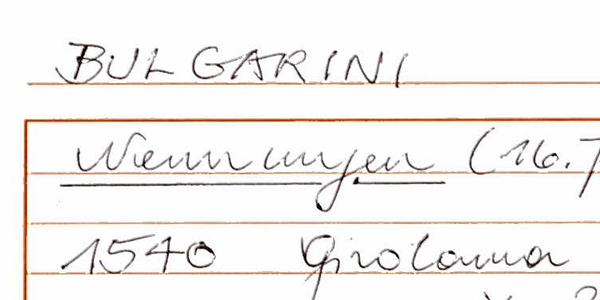 BULGARINI
Nennungen (16.
1540 Girolama